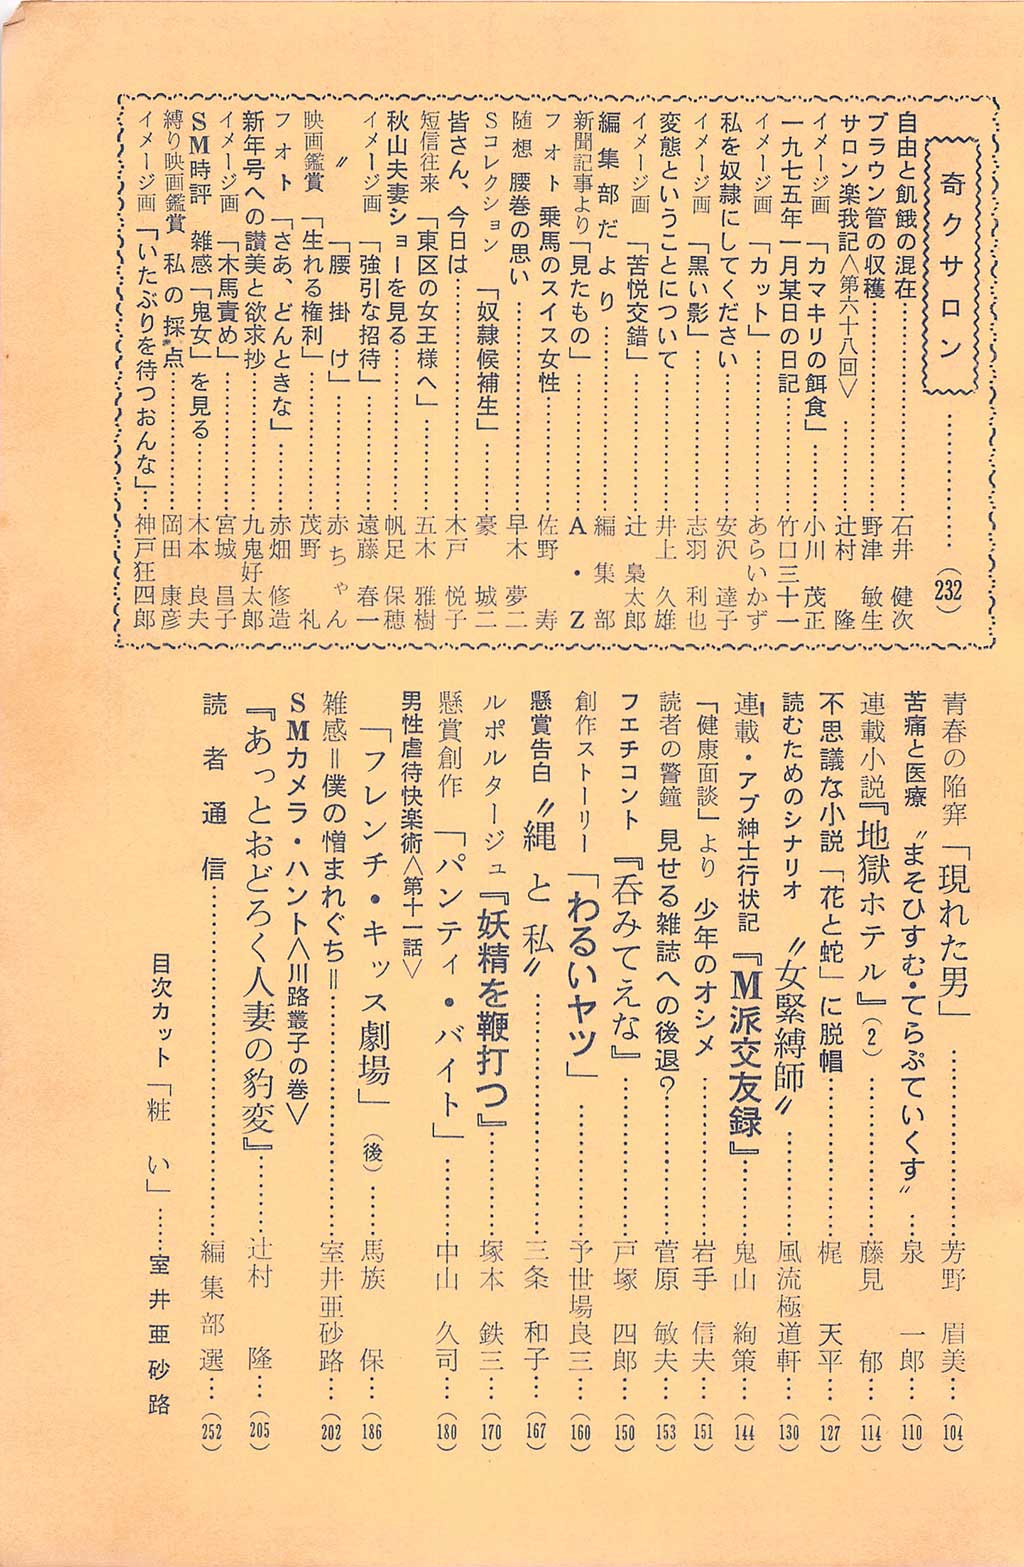 奇クサロン…………(232)
自由と飢餓の混在…………石井 健次
ブラウン管の収穫…………野津 敏生
サロン楽我記<第六十八回>…………辻村 隆
イメージ画 「カマキリの餌食」…………小川 茂正
一九七五年一月某日の日記…………竹口三十一
イメージ画 「カット」…………あらいかず
私を奴隷にしてください…………安沢 達子
イメージ画 「黒い影」…………志羽 利也
変態ということについて…………井上 久雄
イメージ画 「苦悦交錯」…………辻 梟太郎
編集部だより…………編集部
新聞記事より「見たもの」…………A・Z
フォト 乗馬のスイス女性…………佐野 寿
随想 腰巻の思い…………早木 夢二
Sコレクション 「奴隷候補生」…………豪 城二
皆さん、今日は…………木戸 悦子
短信往来 「東区の女王様へ」…………五木 雅樹
秋山夫妻ショーを見る…………帆足 保穂
イメージ画 「強引な招待」…………遠藤 春一
〃 「腰掛け」…………赤ちゃん
映画鑑賞 「生れる権利」…………茂野 礼
フォト 「さあ、どんときな」…………赤畑 修造
新年号への讃美と欲求抄…………九鬼好太郎
イメージ画 「木馬責め」…………宮城 昌子
SM時評 雑感「鬼女」を見る…………木本 良夫
縛り映画鑑賞 私の採点…………岡田 康彦
イメージ画「いたぶりを待つおんな」…神戸狂四郎
青春の陥穽「現れた男」…………芳野 眉美…(104)
苦痛と医療 〝まそひすむ・てらぷていくす〟…泉 一郎…(110)
連載小説『地獄ホテル』(2)…………藤見 郁…(114)
不思議な小説「花と蛇」に脱帽…………梶 天平…(127)
読むためのシナリオ 〝女緊縛師〟…………風流極道軒…(130)
連載・アブ紳士行状記 『M派交友録』…………鬼山 絢策…(144)
「健康面談」より 少年のオシメ…………岩手 信夫…(151)
読者の警鐘 見せる雑誌への後退?…………菅原 敏夫…(153)
フェチコント 『呑みてえな』…………戸塚 四郎…(150)
創作ストーリー「わるいヤツ」…………予世場良三…(160)
懸賞告白 〝縄と私〟…………三条 和子…(167)
ルポルタージュ『妖精を鞭打つ』…………塚本 鉄三…(170)
懸賞創作 「パンティ・バイト」…………中山 久司…(180)
男性虐待快楽術<第十一話>
「フレンチ・キッス劇場」(後)…………馬族 保…(186)
雑感=僕の憎まれぐち=…………室井亜砂路…(202)
SMカメラ・ハント<川路叢子の巻>
『あっとおどろく人妻の豹変』…………辻村 隆…(205)
読者通信…………編集部選…(252)
目次カット「粧い」……室井亜砂路